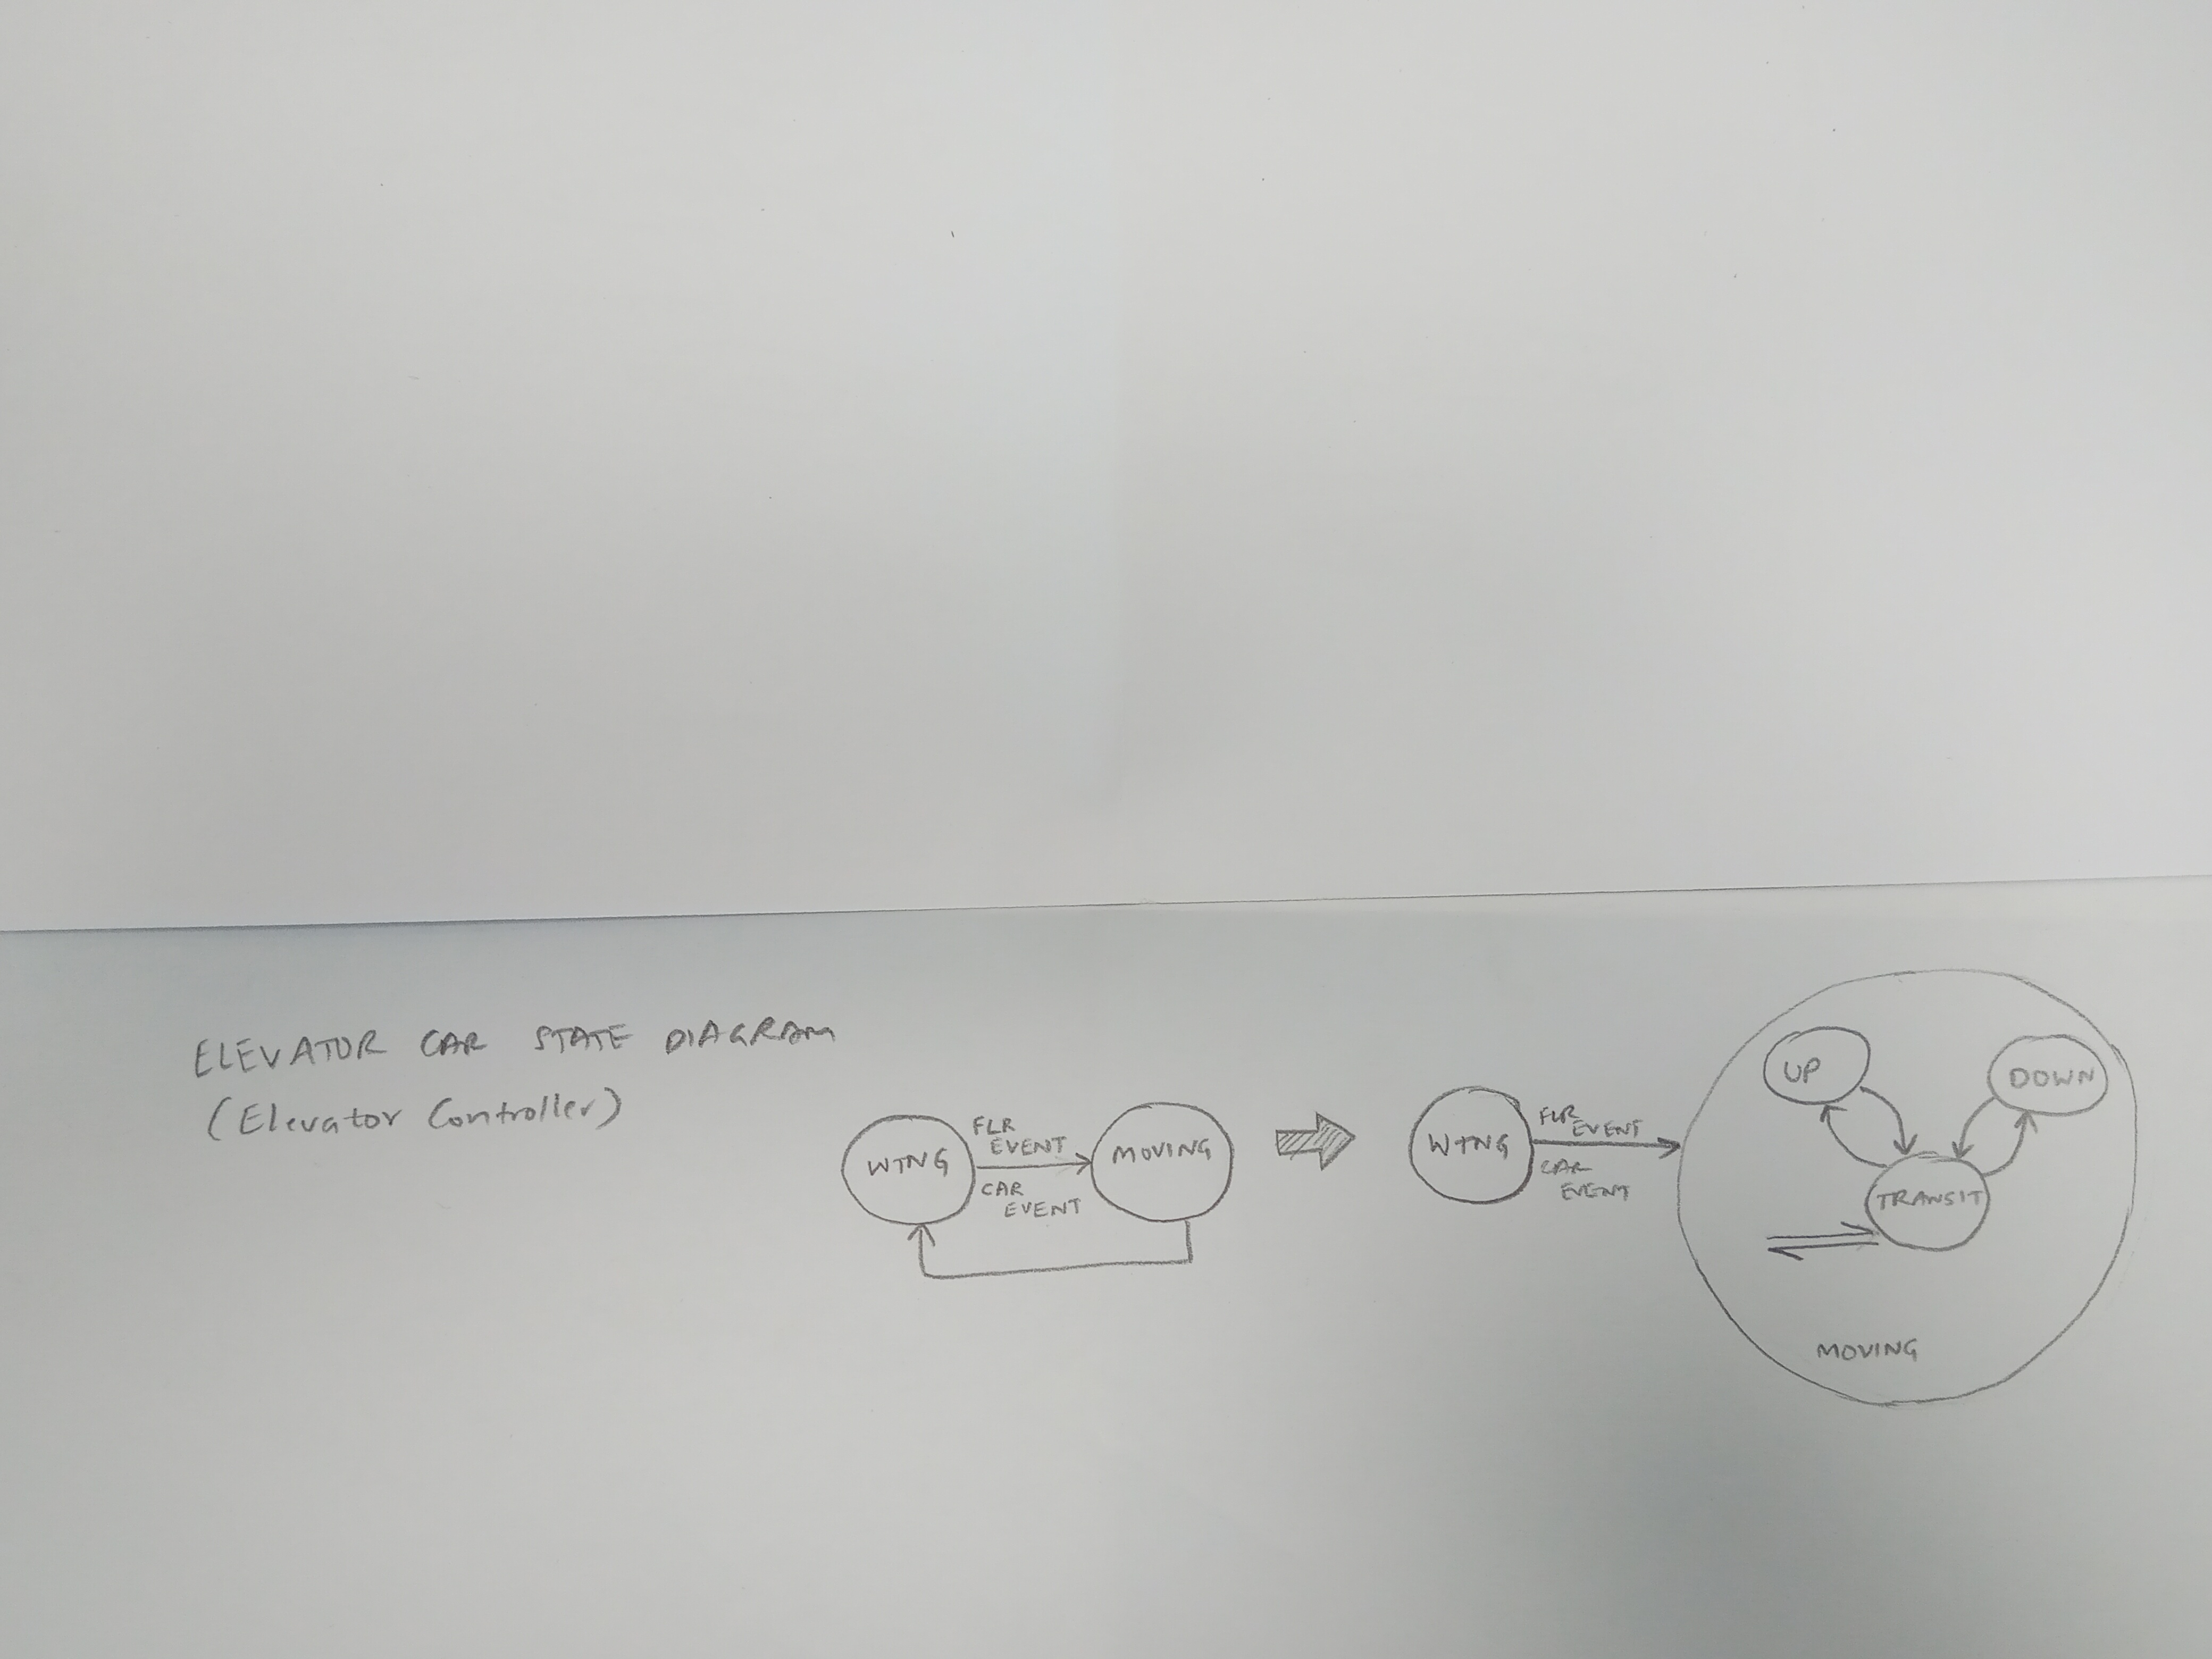 ELEVATOR CAR STATE DIAGRAM
(Elevator Controller)
WTNG
FLR
EVENT
CAR
EVENT
MOVING
WTNG
FLR
EVENT
CAR
EVENT
UP
DOWN
TRANSIT
MOVING